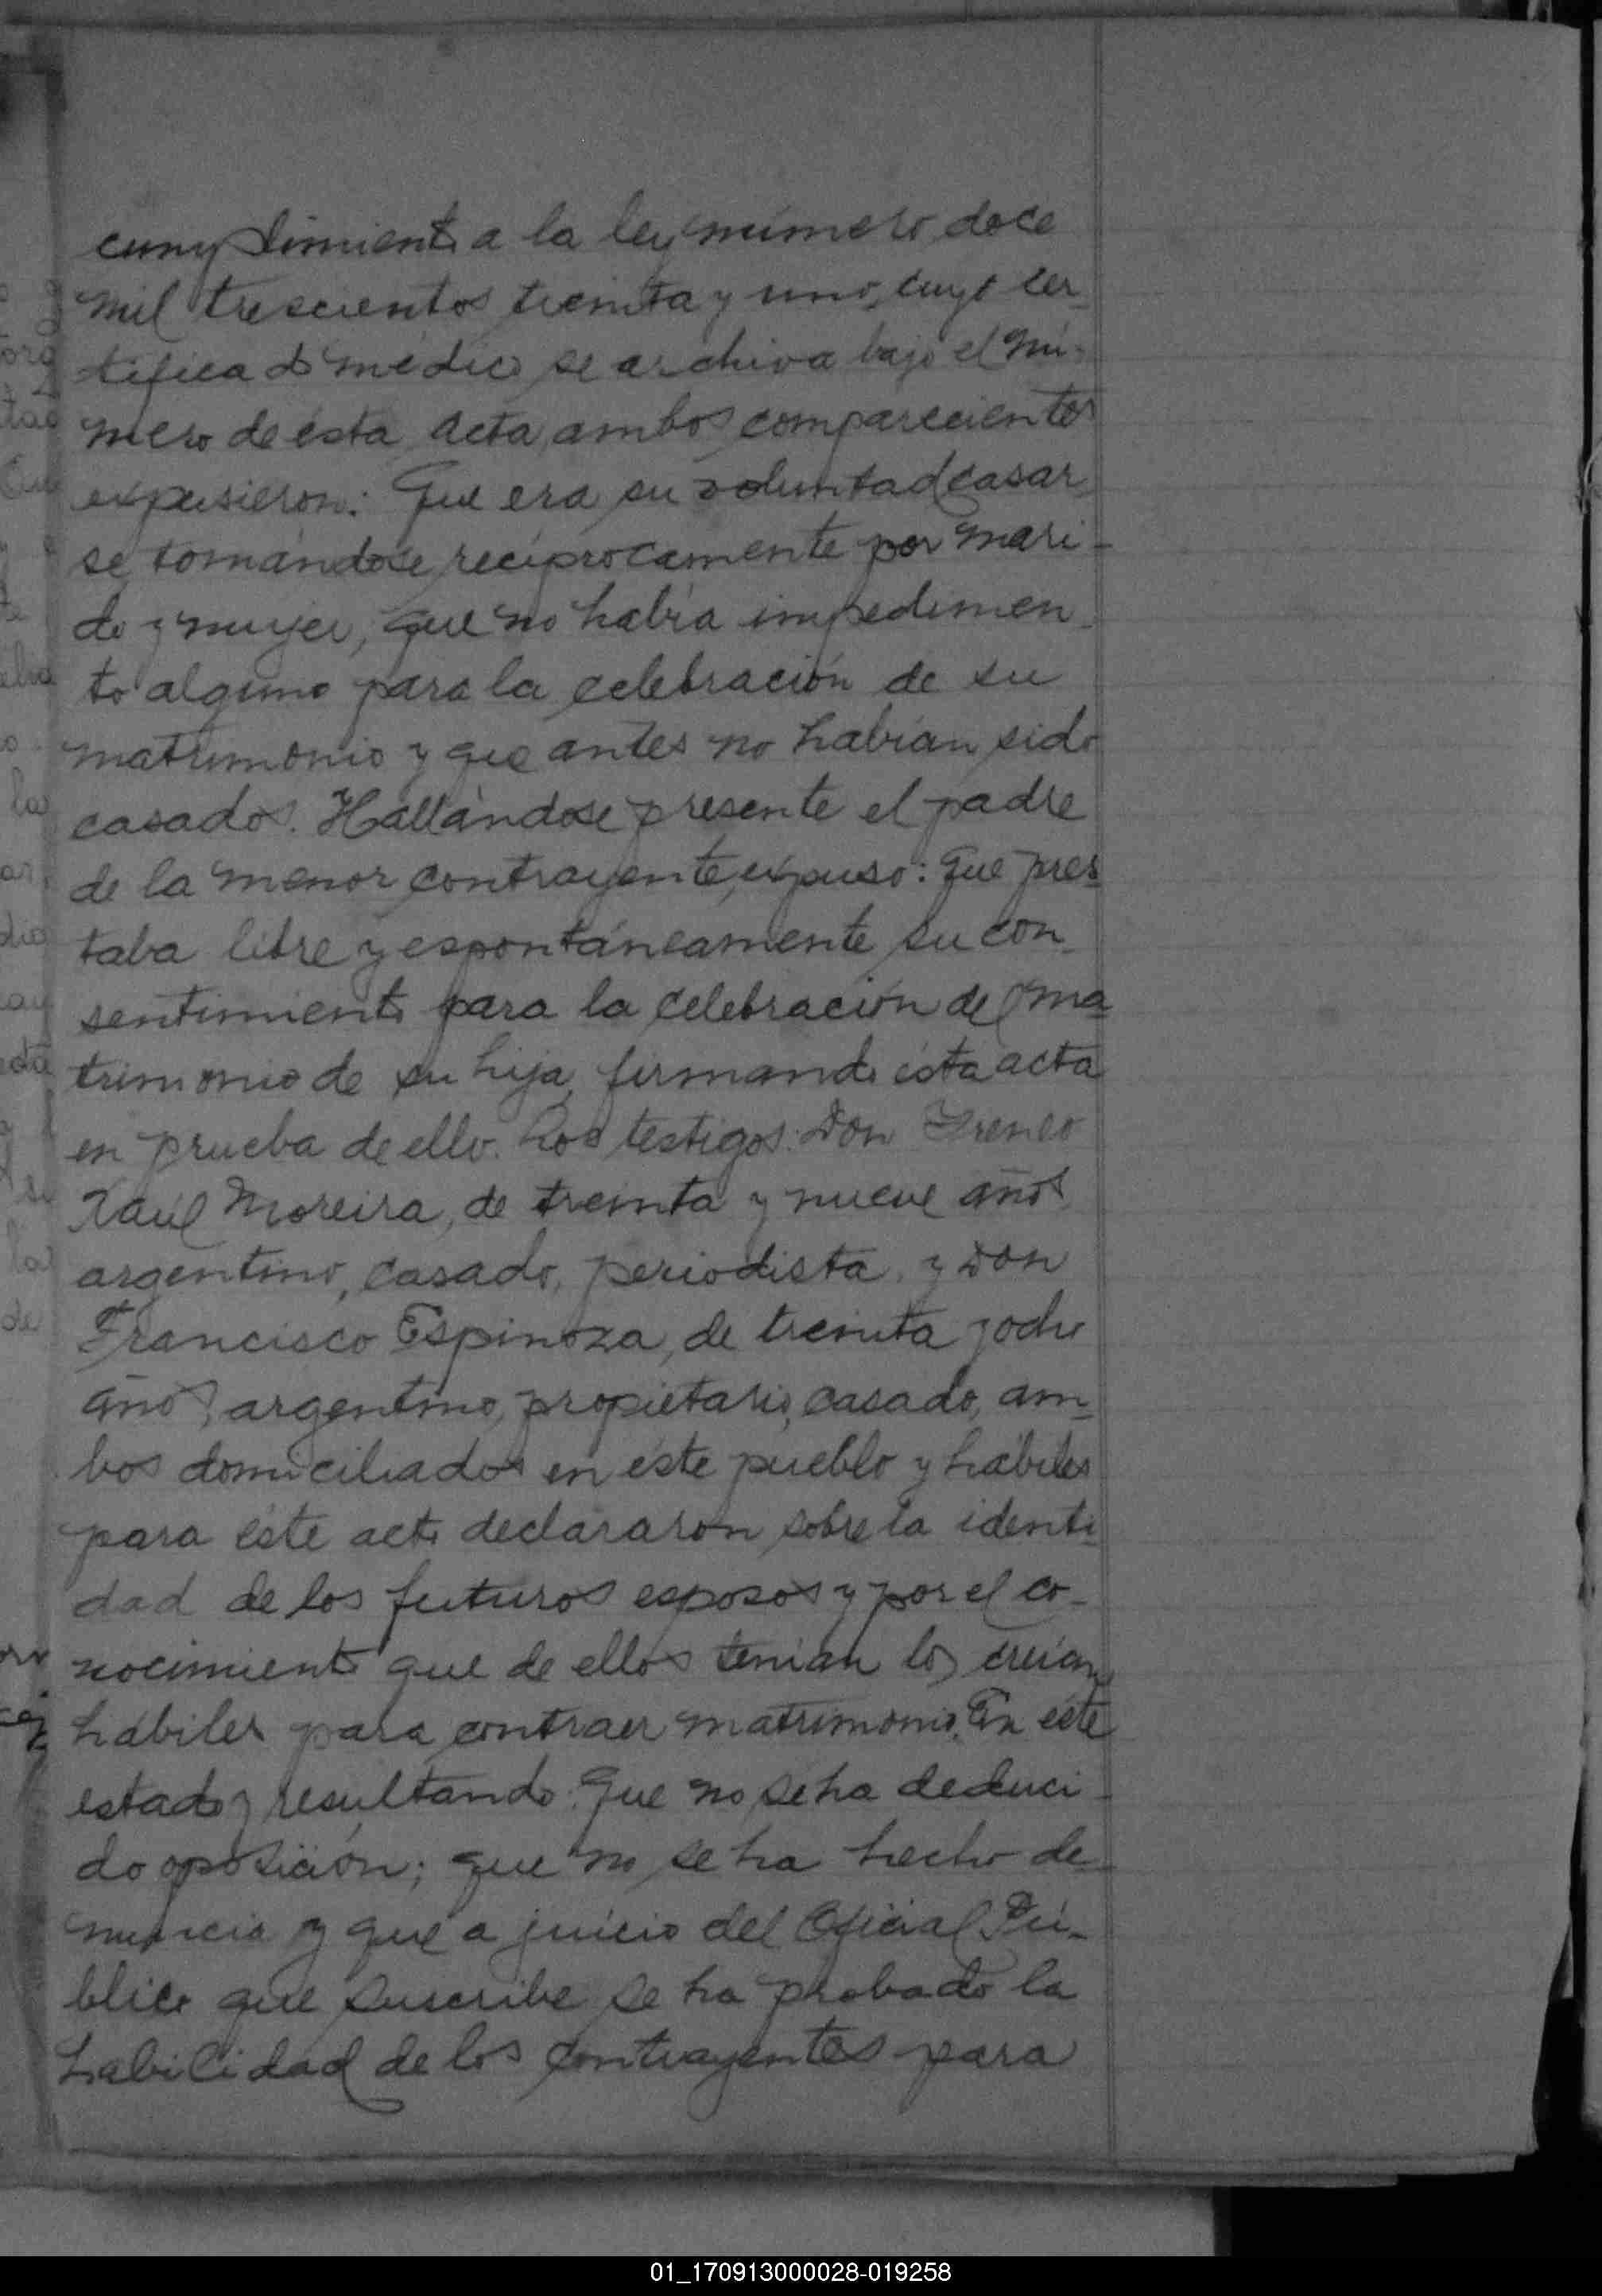 cumplimiento a la ley número doce
mil trescientos treinta y uno, cuyo cer-
tificado médico se archiva bajo el nú-
mero de ésta acta, ambos comparecientes
expusieron: Que era su voluntad casar-
se tomándose recíprocamente por mari-
do y mujer, que no había impedimen-
to alguno para la celebración de su
matrimonio y que antes no habían sido
casados. Hallándose presente el padre
de la menor contrayente, expuso: Que pres-
taba libre y espontáneamente su con-
sentimiento para la celebración del ma-
trimonio de su hija, firmando ésta acta
en prueba de ello. Los testigos: Don Ireneo
Raúl Moreira, de treinta y nueve años
argentino, casado, periodista, y Don
Francisco Espinoza, de treinta y ocho
años, argentino, propietario, casado, am-
bos domiciliados en éste pueblo y hábiles
para éste acto declararon sobre la identi-
dad de los futuros esposos y por el co-
nocimiento que de ellos tenían los creían
hábiles para contraer matrimonio. En éste
estado y resultando: Que no se ha deduci-
do oposición; que no se ha hecho de-
nuncia y que a juicio del Oficial Pú-
blico que suscribe se ha probado la
habilidad de los contrayentes para
01_170913000028-019258